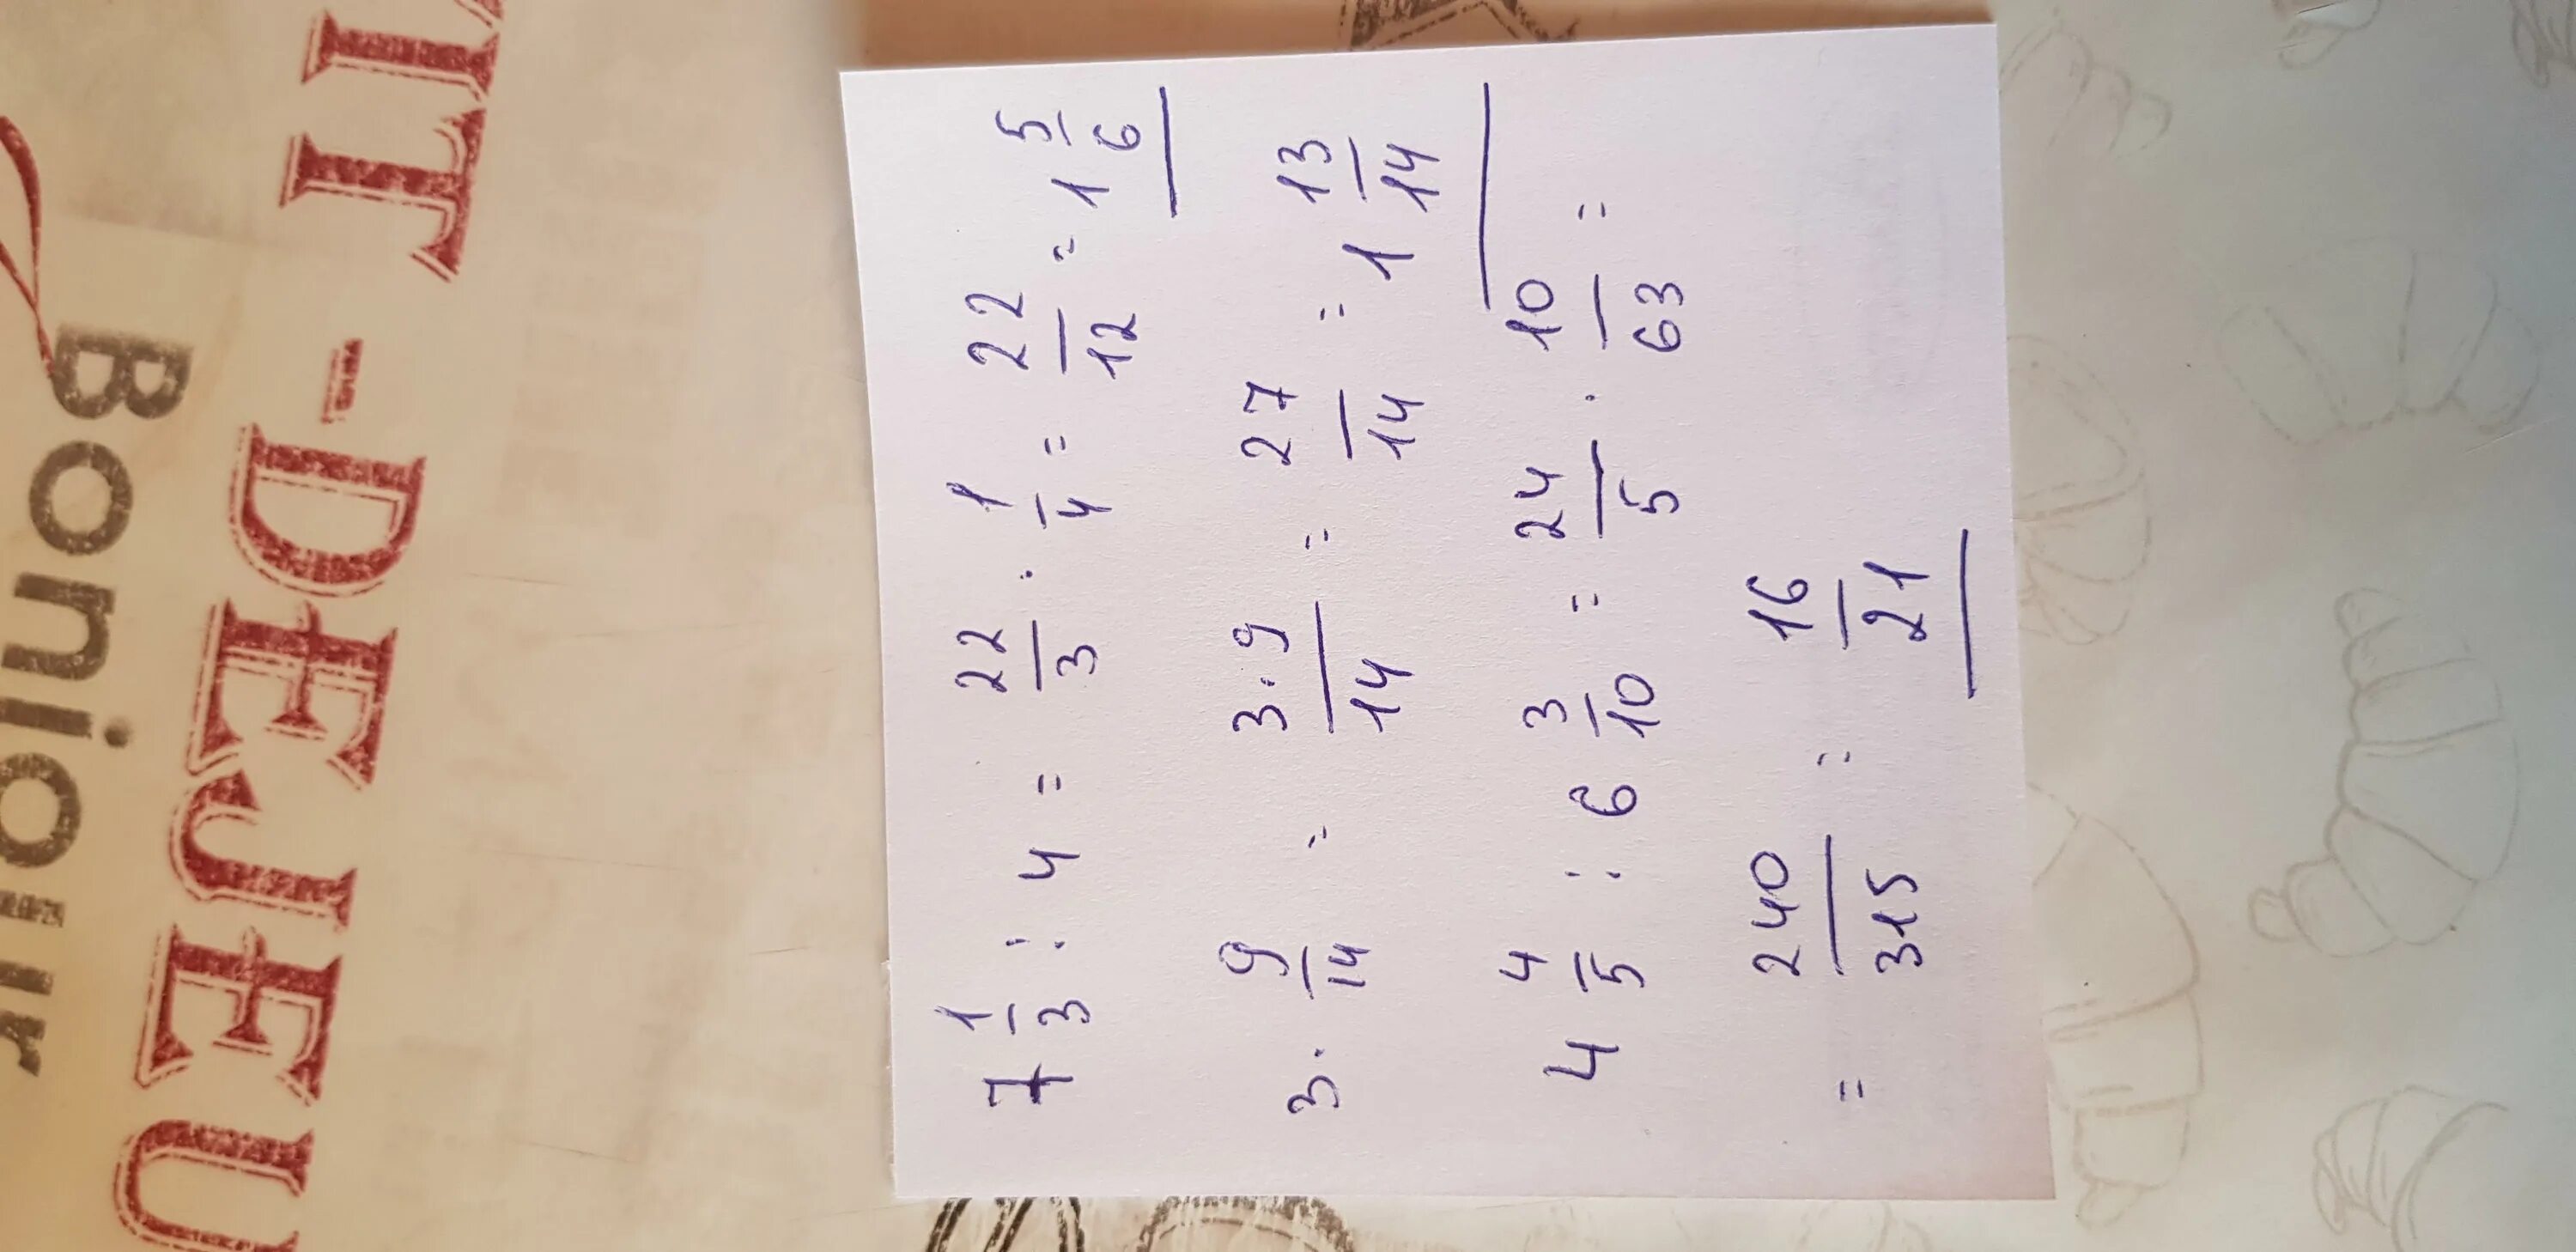 7 1/3 : 4 = 22/3 · 1/4 = 22/12 = 1 5/6
3 · 9/14 = 3·9/14 = 27/14 = 1 13/14
4 4/5 : 6 3/10 = 24/5 · 10/63 =
= 240/315 = 16/21
IT-DEJEU
Bonjour